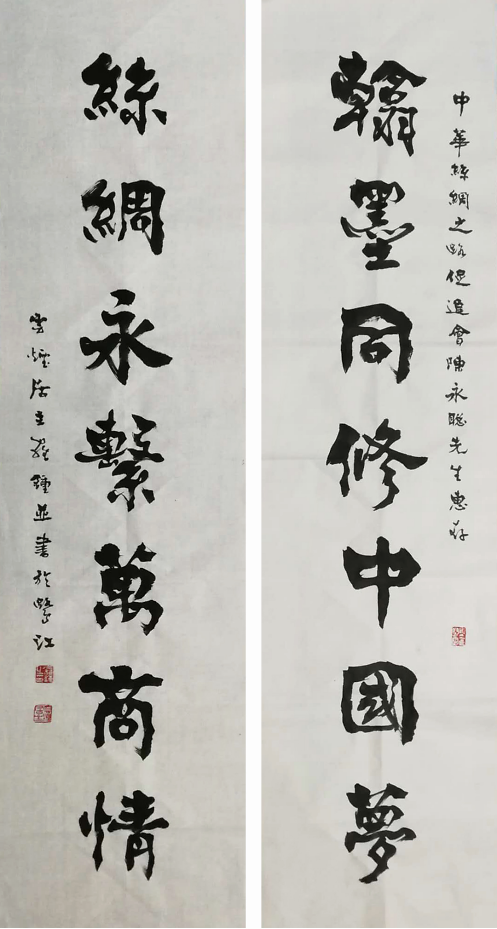 中華絲綢之路促進會陳永聰先生惠存
翰墨同修中國夢
絲綢永繫萬商情
煙居主羅鍾並書於江